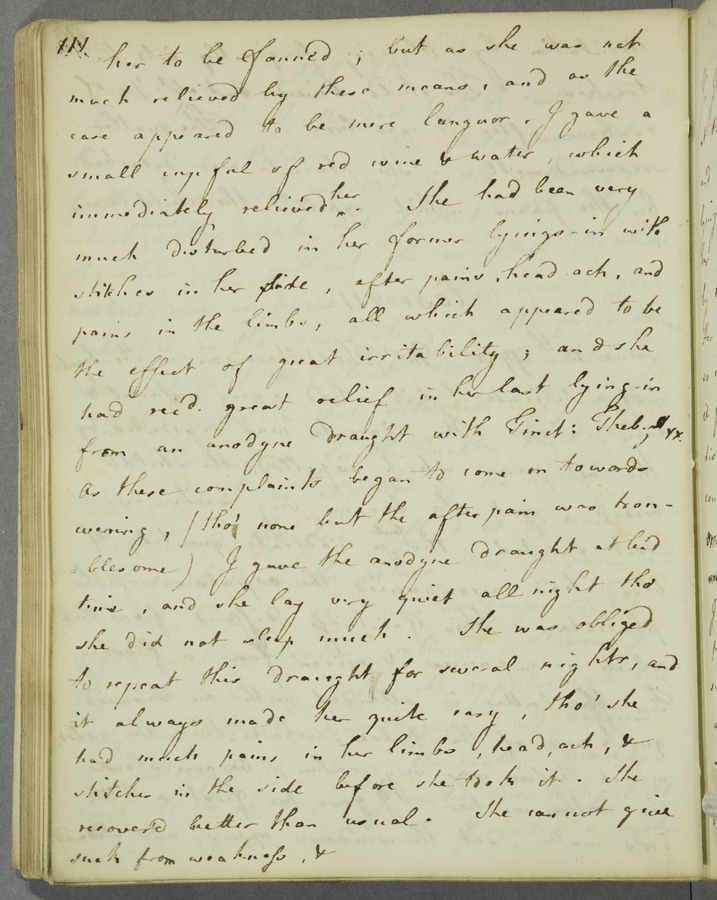 111.
her to be fanned ; but as she was not
much relieved by these means, and as the
case appeared to be mere languor, I gave a
small cupful of red wine & water, which
immediately relieved her. She had been very
much disturbed in her former lyings-in with
stitches in her side, after pains, head ach, and
pains in the limbs, all which appeared to be
the effect of great irritability ; and she
had rec'd. great relief in her last lying-in
from an anodyne draught with Tinct: Theb:
As these complaints began to come on towards
evening, (tho' none but the after pain was trou-
-blesome) I gave the anodyne draught at bed
time, and she lay very quiet all night tho'
she did not sleep much. She was obliged
to repeat this draught for several nights, and
it always made her quite easy, tho' she
had much pains in her limbs, head, ach, &
stitches in the side before she took it. She
recover'd better than usual. She cannot give
suck from weakness, &